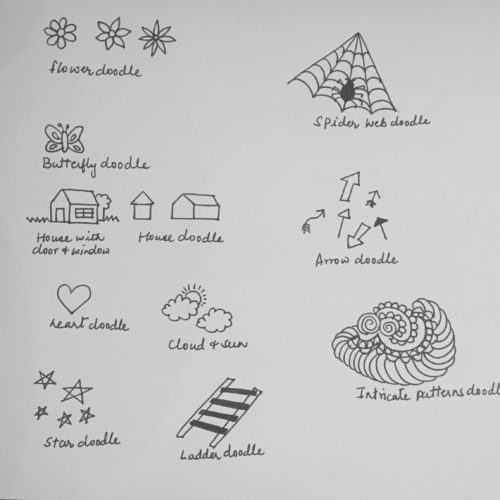 flower doodle
Spider web doodle
Butterfly doodle
House with
door & window
House doodle
Arrow doodle
heart doodle
Cloud & sun
Intricate patterns doodl
Star doodle
Ladder doodle